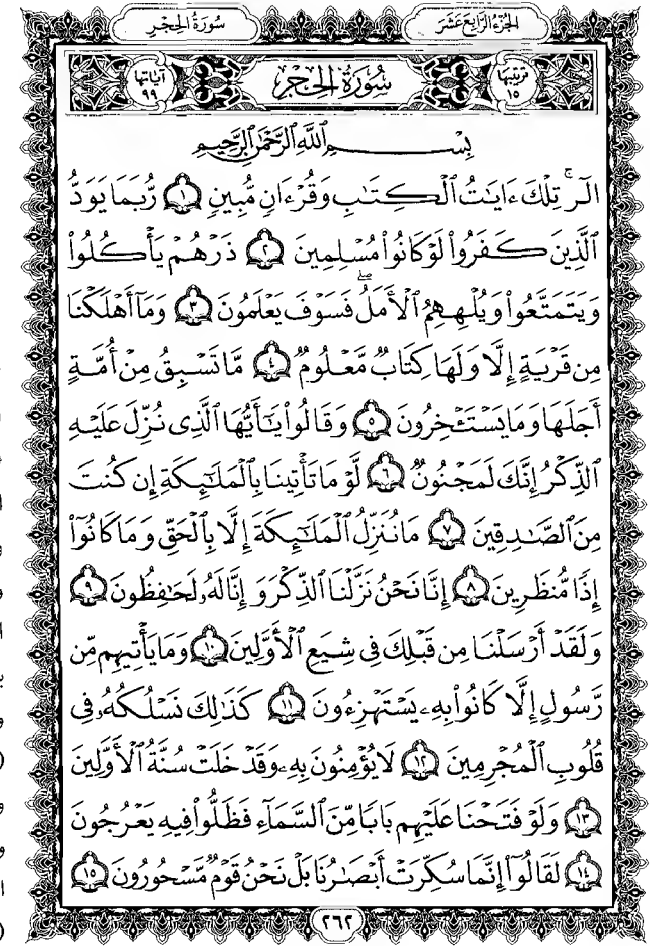 الجزء الرابع عشر
سورة الحجر
ترتيبها ١٥
سُورَةُ الحِجْرِ
آياتها ٩٩
بِسْمِ ٱللَّهِ ٱلرَّحْمَٰنِ ٱلرَّحِيمِ
الٓرۚ تِلْكَ ءَايَٰتُ ٱلْكِتَٰبِ وَقُرْءَانٍ مُّبِينٍ ١ رُّبَمَا يَوَدُّ
ٱلَّذِينَ كَفَرُوا۟ لَوْ كَانُوا۟ مُسْلِمِينَ ٢ ذَرْهُمْ يَأْكُلُوا۟
وَيَتَمَتَّعُوا۟ وَيُلْهِهِمُ ٱلْأَمَلُۖ فَسَوْفَ يَعْلَمُونَ ٣ وَمَآ أَهْلَكْنَا
مِن قَرْيَةٍ إِلَّا وَلَهَا كِتَابٌ مَّعْلُومٌ ٤ مَّا تَسْبِقُ مِنْ أُمَّةٍ
أَجَلَهَا وَمَا يَسْتَـْٔخِرُونَ ٥ وَقَالُوا۟ يَٰٓأَيُّهَا ٱلَّذِى نُزِّلَ عَلَيْهِ
ٱلذِّكْرُ إِنَّكَ لَمَجْنُونٌ ٦ لَّوْ مَا تَأْتِينَا بِٱلْمَلَٰٓئِكَةِ إِن كُنتَ
مِنَ ٱلصَّٰدِقِينَ ٧ مَا نُنَزِّلُ ٱلْمَلَٰٓئِكَةَ إِلَّا بِٱلْحَقِّ وَمَا كَانُوٓا۟
إِذًا مُّنظَرِينَ ٨ إِنَّا نَحْنُ نَزَّلْنَا ٱلذِّكْرَ وَإِنَّا لَهُۥ لَحَٰفِظُونَ ٩
وَلَقَدْ أَرْسَلْنَا مِن قَبْلِكَ فِى شِيَعِ ٱلْأَوَّلِينَ ١٠ وَمَا يَأْتِيهِم مِّن
رَّسُولٍ إِلَّا كَانُوا۟ بِهِۦ يَسْتَهْزِءُونَ ١١ كَذَٰلِكَ نَسْلُكُهُۥ فِى
قُلُوبِ ٱلْمُجْرِمِينَ ١٢ لَا يُؤْمِنُونَ بِهِۦ وَقَدْ خَلَتْ سُنَّةُ ٱلْأَوَّلِينَ
١٣ وَلَوْ فَتَحْنَا عَلَيْهِم بَابًا مِّنَ ٱلسَّمَآءِ فَظَلُّوا۟ فِيهِ يَعْرُجُونَ
١٤ لَقَالُوٓا۟ إِنَّمَا سُكِّرَتْ أَبْصَٰرُنَا بَلْ نَحْنُ قَوْمٌ مَّسْحُورُونَ ١٥
٢٦٢